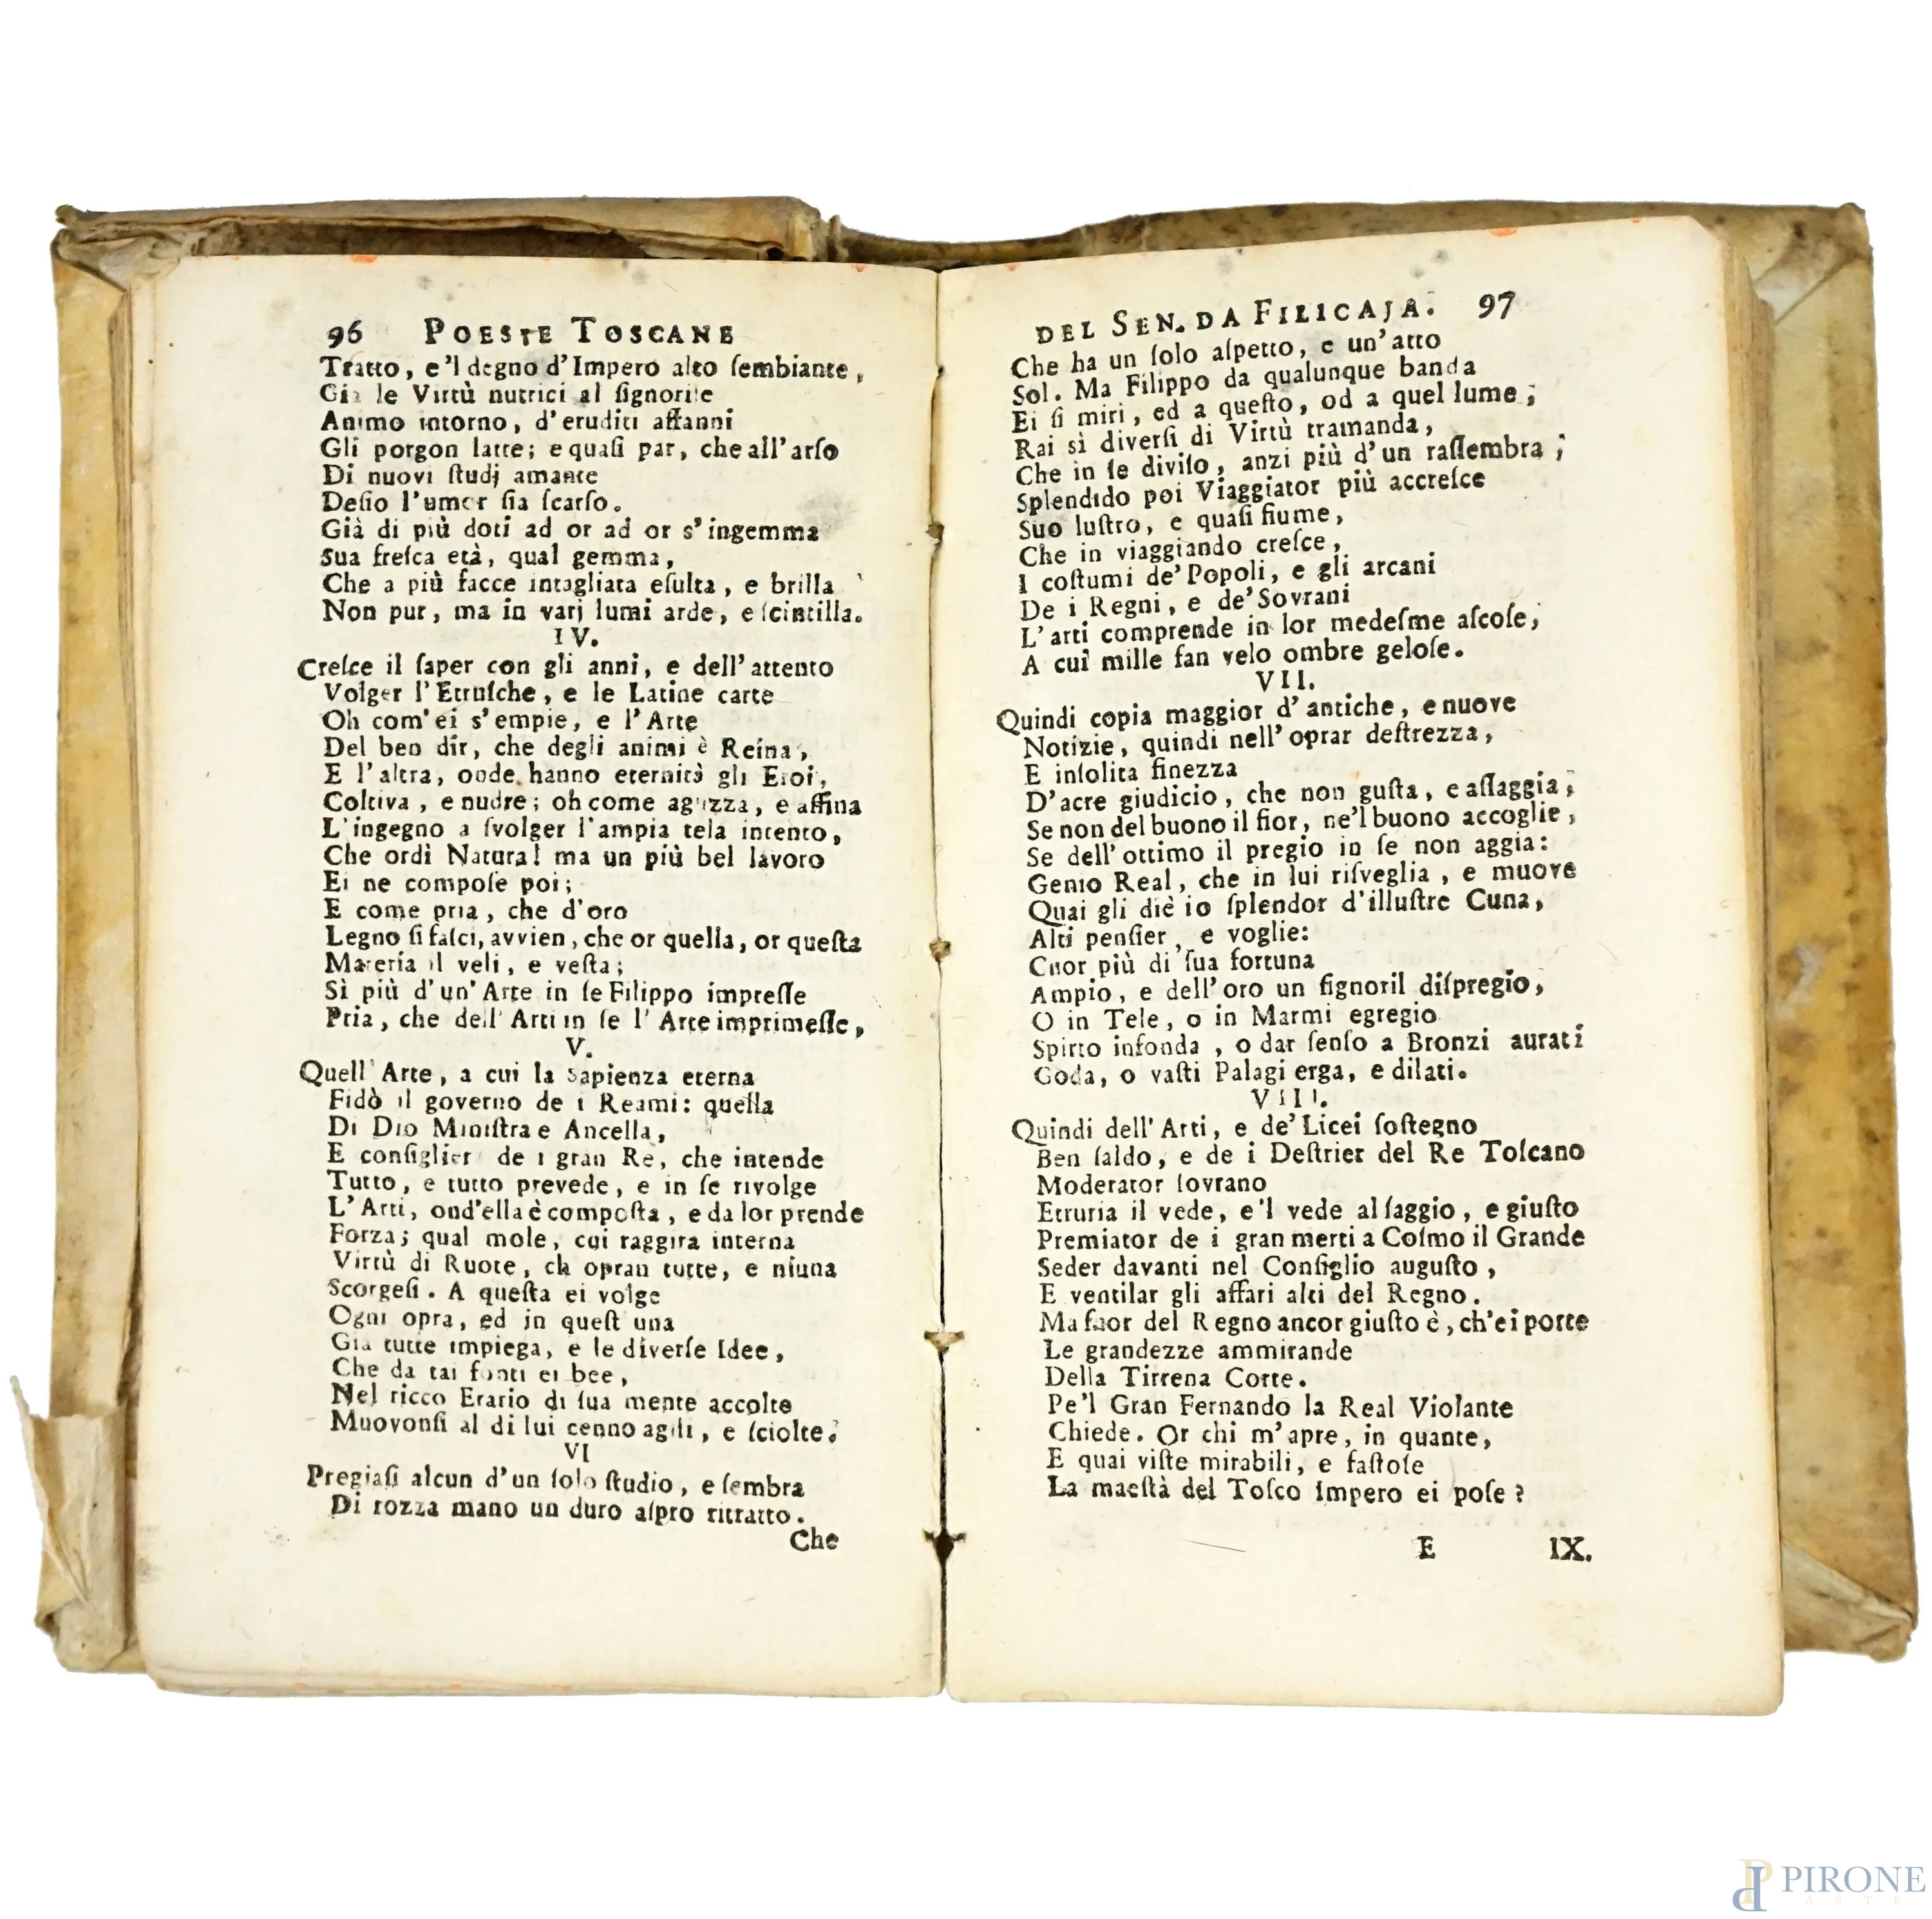 96 POESIE TOSCANE
Tratto, e'l degno d'Impero alto ſembiante,
Già le Virtù nutrici al ſignorile
Animo intorno, d'eruditi affanni
Gli porgon latte; e quaſi par, che all'arſo
Di nuovi ſtudj amante
Deſio l'umor ſia ſcarſo.
Già di più doti ad or ad or s'ingemma
Sua freſca età, qual gemma,
Che a più facce intagliata eſulta, e brilla
Non pur, ma in varj lumi arde, e ſcintilla.
IV.
Creſce il ſaper con gli anni, e dell'attento
Volger l'Etruſche, e le Latine carte
Oh com'ei s'empie, e l'Arte
Del ben dir, che degli animi è Reina,
E l'altra, onde hanno eternità gli Eroi,
Coltiva, e nudre; oh come aguzza, e affina
L'ingegno a ſvolger l'ampia tela intento,
Che ordì Natura! ma un più bel lavoro
Ei ne compoſe poi;
E come pria, che d'oro
Legno ſi faſci, avvien, che or quella, or queſta
Materia il veli, e veſta;
Sì più d'un'Arte in ſe Filippo impreſſe
Pria, che dell'Arti in ſe l'Arte imprimeſſe,
V.
Quell'Arte, a cui la Sapienza eterna
Fidò il governo de i Reami: quella
Di Dio Miniſtra e Ancella,
E conſiglier de i gran Re, che intende
Tutto, e tutto prevede, e in ſe rivolge
L'Arti, ond'ella è compoſta, e da lor prende
Forza; qual mole, cui raggira interna
Virtù di Ruote, ch opran tutte, e niuna
Scorgeſi. A queſta ei volge
Ogni opra, ed in queſt una
Già tutte impiega, e le diverſe Idee,
Che da tai fonti ei bee,
Nel ricco Erario di ſua mente accolte
Muovonſi al di lui cenno agili, e ſciolte.
VI
Pregiaſi alcun d'un ſolo ſtudio, e ſembra
Di rozza mano un duro aſpro ritratto.
Che
DEL SEN. DA FILICAJA. 97
Che ha un ſolo aſpetto, e un'atto
Sol. Ma Filippo da qualunque banda
Ei ſi miri, ed a queſto, od a quel lume;
Rai sì diverſi di Virtù tramanda,
Che in ſe diviſo, anzi più d'un raſſembra;
Splendido poi Viaggiator più accreſce
Suo luſtro, e quaſi fiume,
Che in viaggiando creſce,
I coſtumi de'Popoli, e gli arcani
De i Regni, e de'Sovrani
L'arti comprende in lor medeſme aſcoſe,
A cui mille fan velo ombre geloſe.
VII.
Quindi copia maggior d'antiche, e nuove
Notizie, quindi nell'oprar deſtrezza,
E inſolita finezza
D'acre giudicio, che non guſta, e aſſaggia,
Se non del buono il fior, ne'l buono accoglie,
Se dell'ottimo il pregio in ſe non aggia:
Genio Real, che in lui riſveglia, e muove
Quai gli diè io ſplendor d'illuſtre Cuna,
Alti penſier, e voglie:
Cuor più di ſua fortuna
Ampio, e dell'oro un ſignoril diſpregio,
O in Tele, o in Marmi egregio
Spirto infonda, o dar ſenſo a Bronzi aurati
Goda, o vaſti Palagi erga, e dilati.
VIII.
Quindi dell'Arti, e de'Licei ſoſtegno
Ben ſaldo, e de i Deſtrier del Re Toſcano
Moderator ſovrano
Etruria il vede, e'l vede al ſaggio, e giuſto
Premiator de i gran merti a Coſmo il Grande
Seder davanti nel Conſiglio auguſto,
E ventilar gli affari alti del Regno.
Ma fuor del Regno ancor giuſto è, ch'ei porte
Le grandezze ammirande
Della Tirrena Corte.
Pe'l Gran Fernando la Real Violante
Chiede. Or chi m'apre, in quante,
E quai viſte mirabili, e faſtoſe
La maeſtà del Toſco Impero ei poſe?
E IX.
PIRONE
ASTE